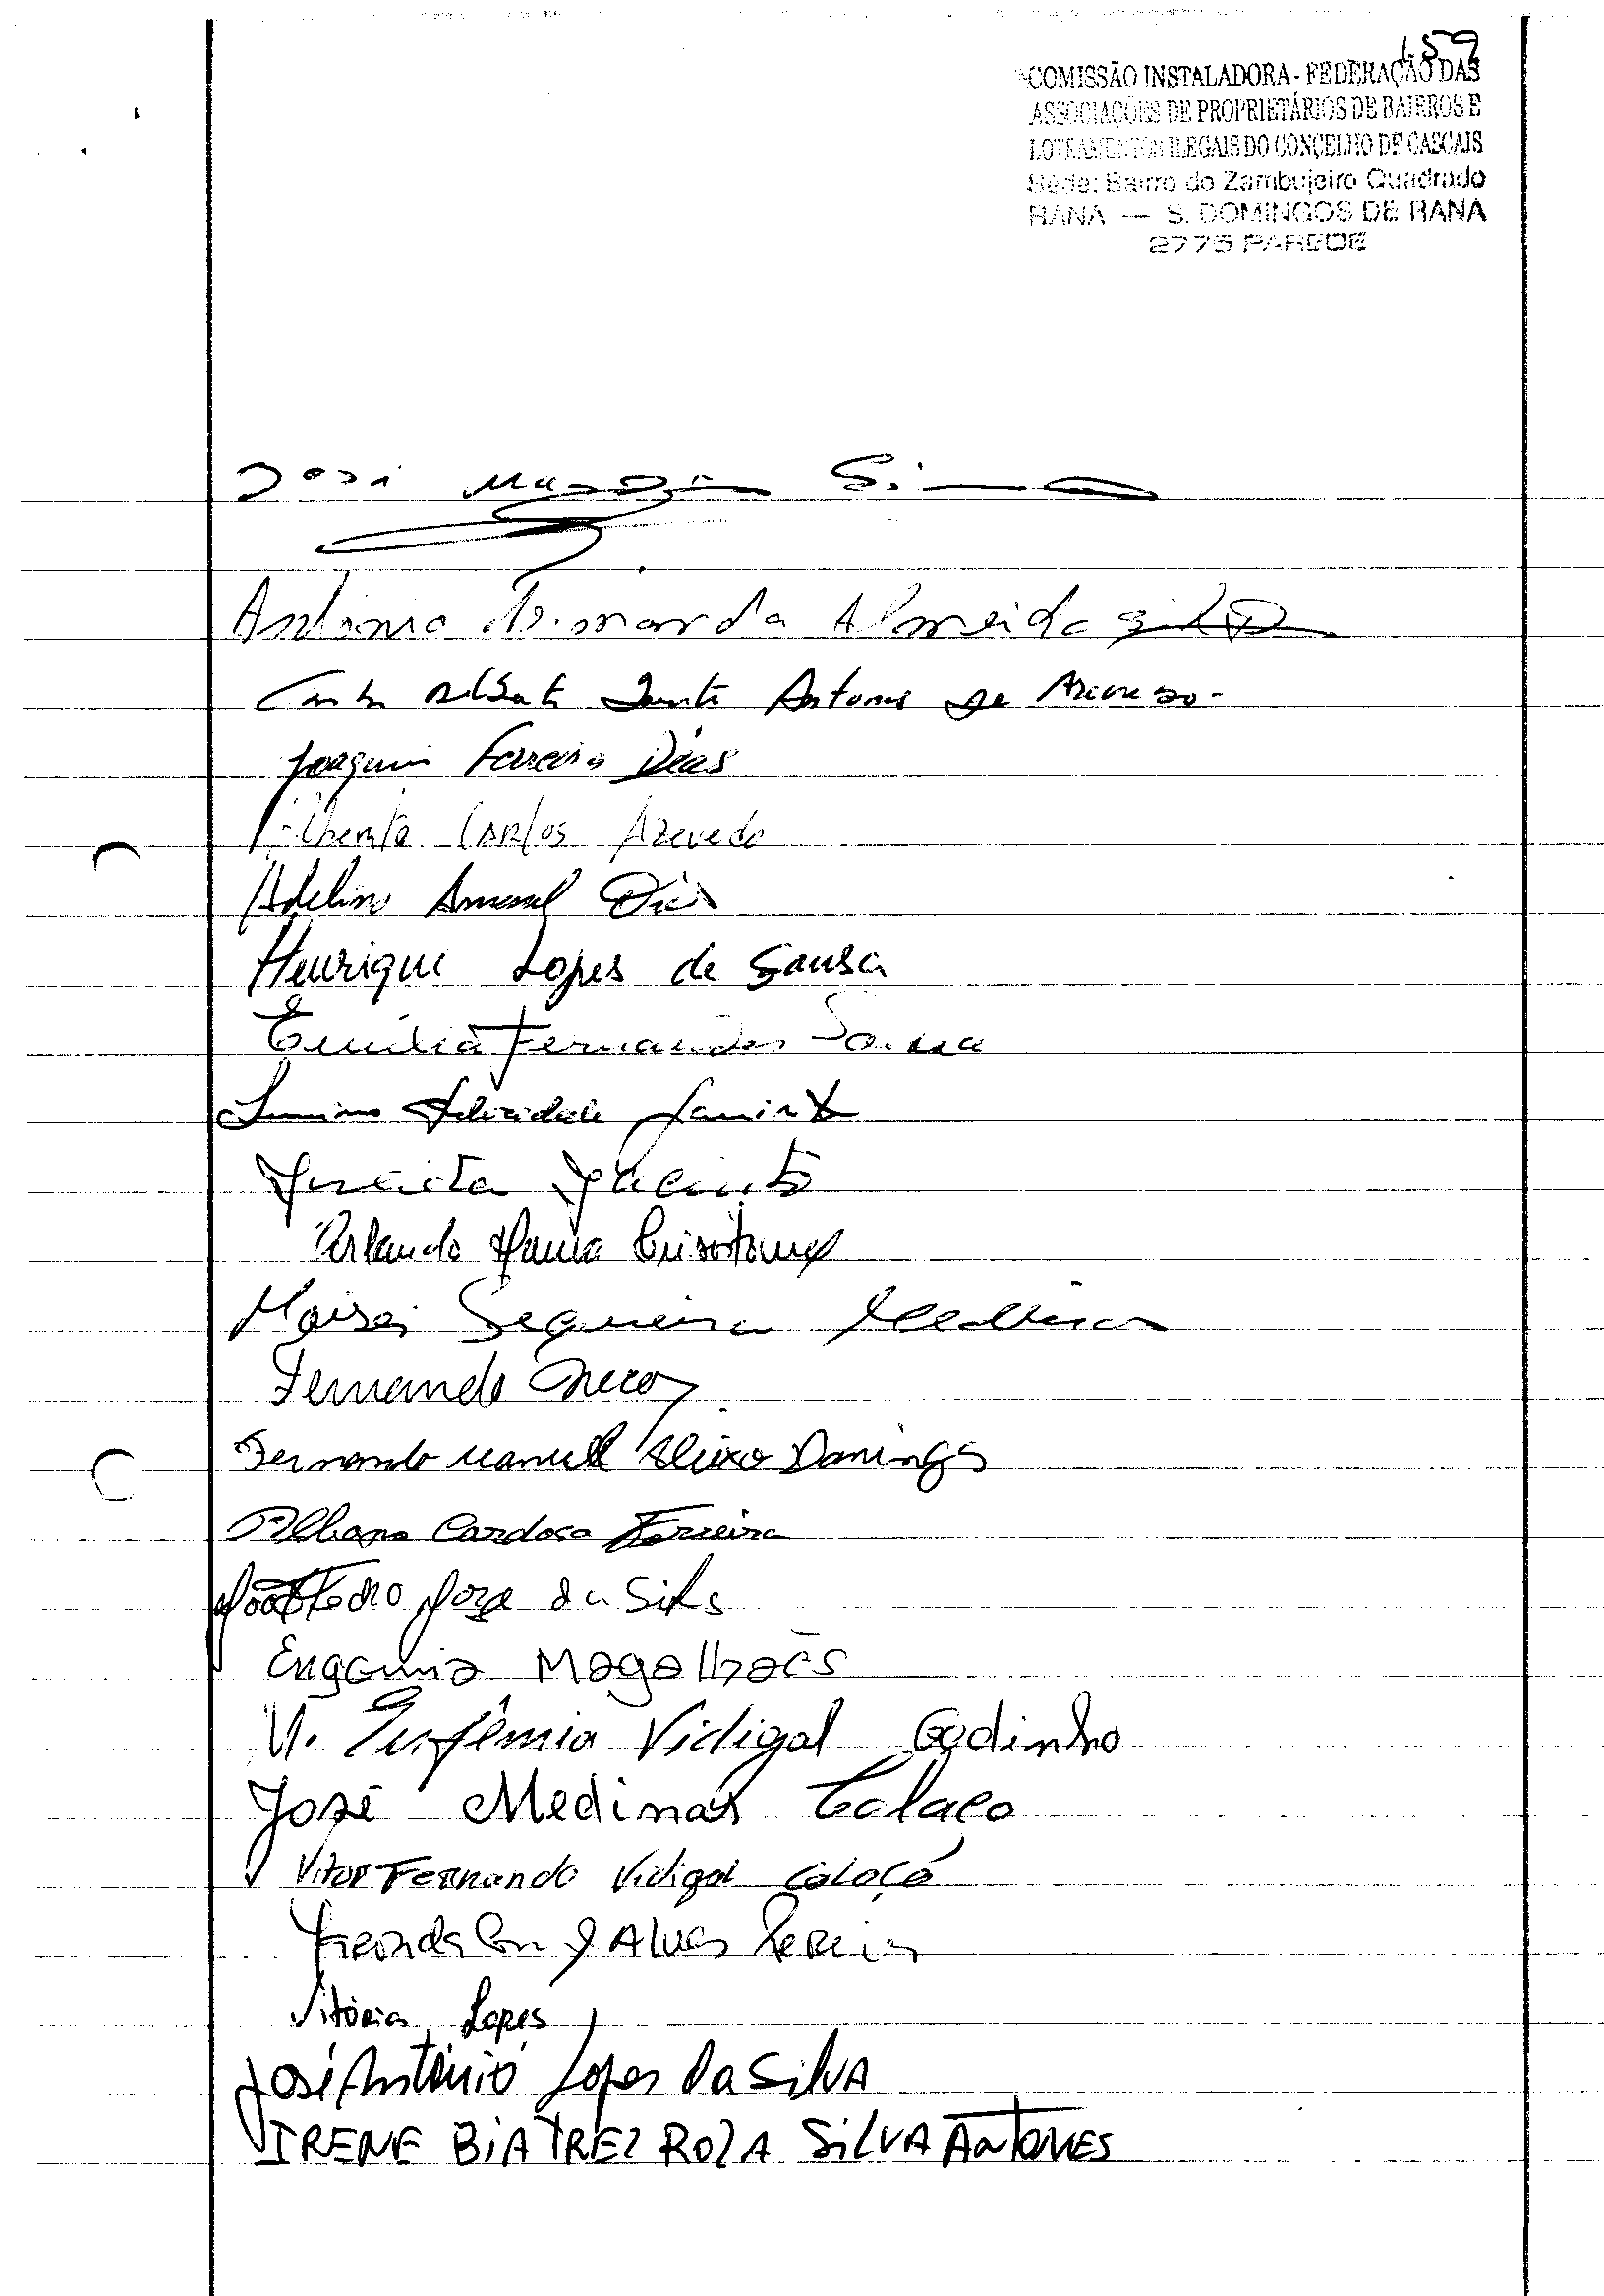 159
COMISSÃO INSTALADORA - FEDERAÇÃO DAS
ASSOCIAÇÕES DE PROPRIETÁRIOS DE BAIRROS E
LOTEAMENTOS ILEGAIS DO CONCELHO DE CASCAIS
Sede: Bairro do Zambujeiro Quadrado
RANA — S. DOMINGOS DE RANA
2775 PAREDE
José
António Almeida
Antonio de Azevedo
Joaquim Ferreira Dias
Carlos Azevedo
Adelino Amaral Dias
Henrique Lopes de Sousa
Emília Fernandes Sousa
Felicidade
Jacinto
Orlando Maria
Moises Sequeira
Fernando
Fernando Manuel Aleixo Domingos
Albano Cardoso Ferreira
Pedro José da Silva
Engomia Magalhães
Eufêmia Vidigal Godinho
José Medinas Colaço
Vitor Fernando Vidigal Colaço
Alves Pereira
Vitória Lopes
José António Lopes da Silva
IRENE BIATREZ ROZA SILVA ANTONES